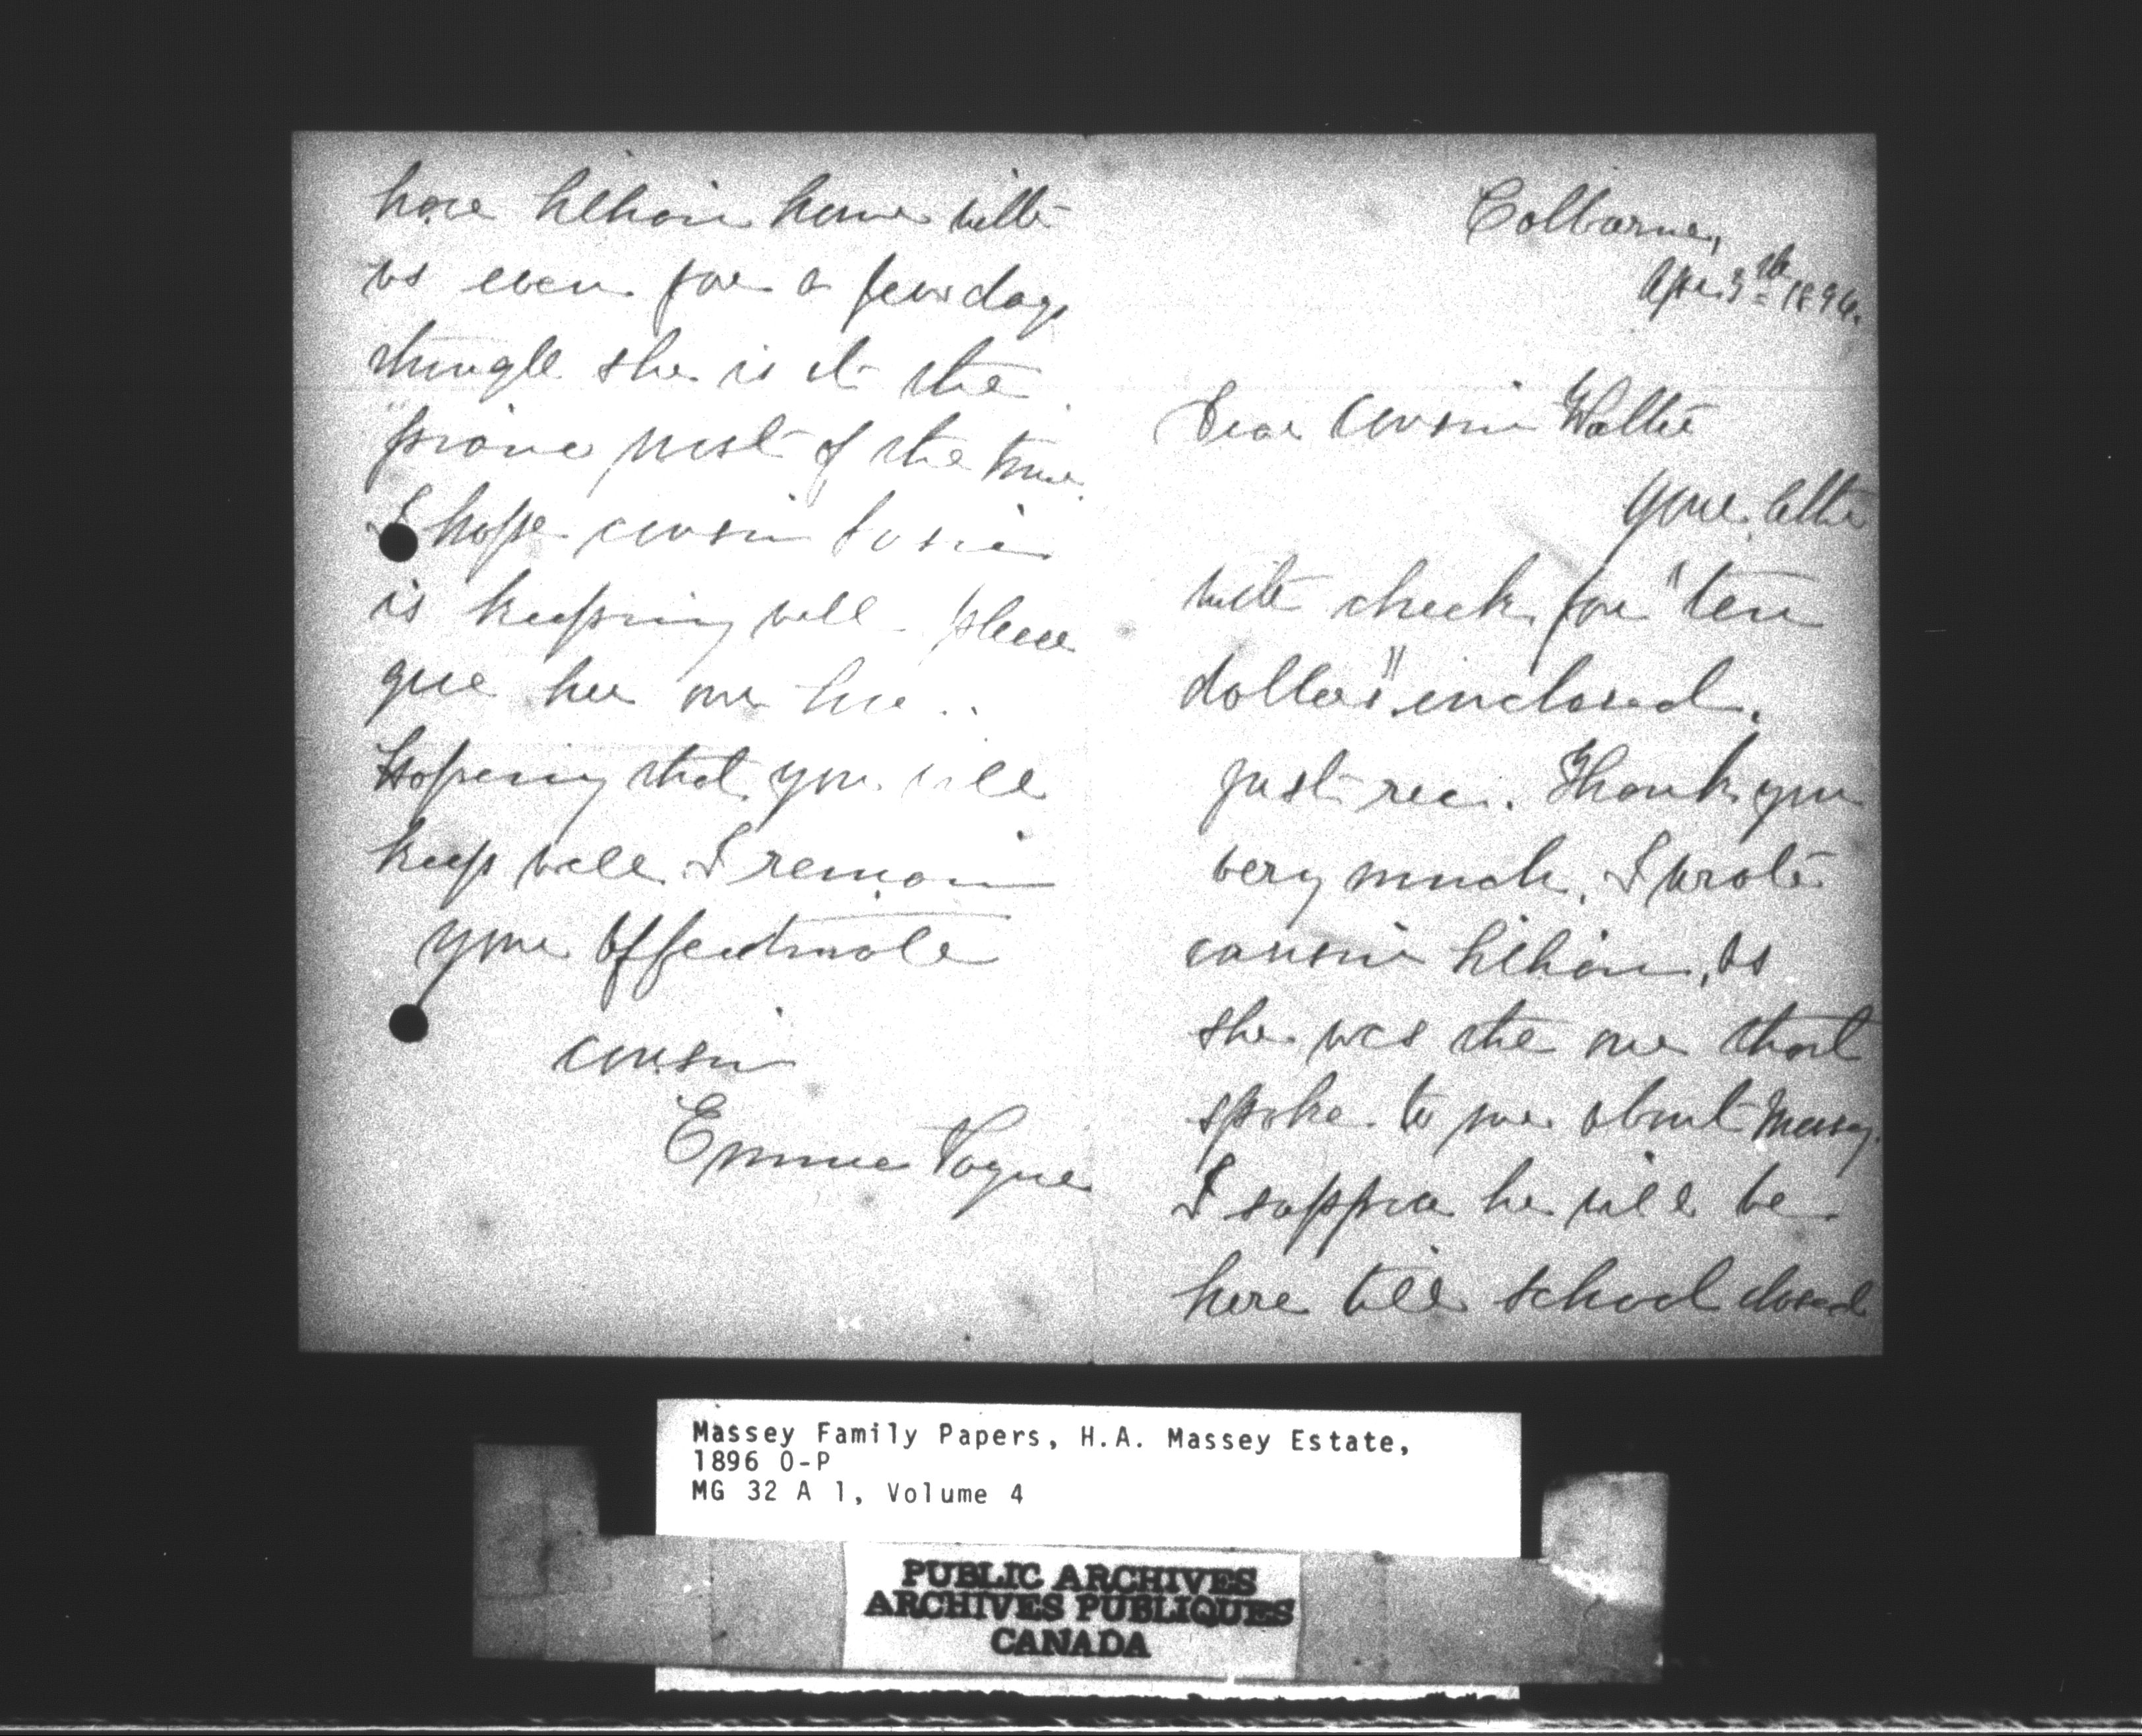 Colborne,
Apr. 3rd 1896.
Dear Cousin Walter
Your letter
with check for "ten
dollars" inclosed.
just rec. Thank you
very much. I wrote
cousin Lilian, as
she was the one that
spoke to me about
I suppose he will be
here till school closed
have Lilian home with
us even for a few days
she is at the
piano most of the time.
I hope cousin Susie
is keeping well - please
give her our love..
Hopeing that you will
keep well I remain
your affectionate
cousin
Emma Payne
Massey Family Papers, H.A. Massey Estate,
1896 O-P
MG 32 A 1, Volume 4
PUBLIC ARCHIVES
ARCHIVES PUBLIQUES
CANADA